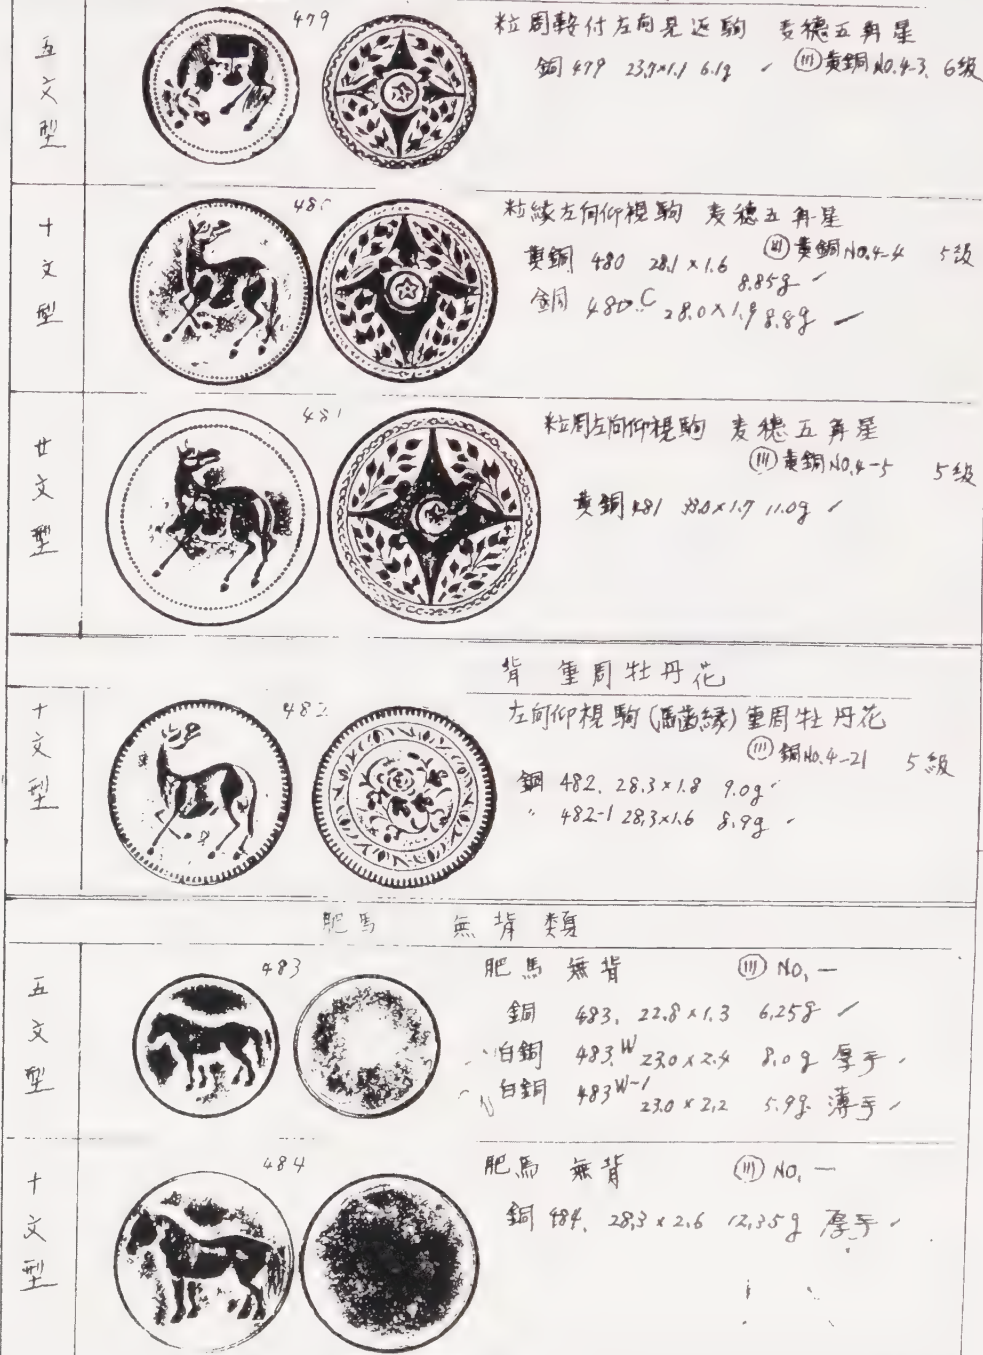 五文型
479
粒周鞍付左向見返駒 麦穂五舟星
銅 479 23.7×1.1 6.1g ✓ (川)黄銅 No.4-3. 6級
十文型
480
粒縁左向仰視駒 麦穂五舟星
黄銅 480 28.1×1.6 8.85g ✓ (川)黄銅 No.4-4 5級
銅 480.C 28.0×1.9 8.8g ✓
廿文型
481
粒周左向仰視駒 麦穂五舟星
(川)黄銅 No.4-5 5級
黄銅 481 11.0g ✓
背 重周牡丹花
十文型
482
左向仰視駒(馬歯縁)重周牡丹花
(川)銅 No.4-21 5級
銅 482. 28.3×1.8 9.0g ✓
〃 482-1 28.3×1.6 8.9g ✓
肥馬 無背類
五文型
483
肥馬 無背 (川) No. 一
銅 483. 22.8×1.3 6.25g ✓
白銅 483.W 23.0×2.4 8.0g 厚手 ✓
白銅 483W-1 23.0×2.2 5.9g. 薄手 ✓
十文型
484
肥馬 無背 (川) No. 一
銅 484. 28.3×2.6 12.35g 厚手 ✓